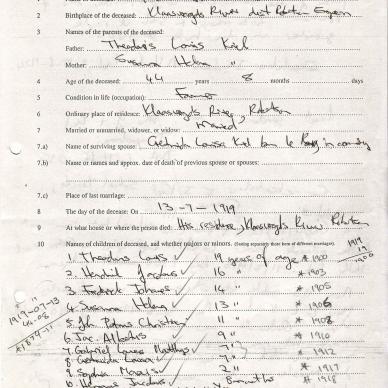 2 Birthplace of the deceased: Klaasvoogds River dist Robertson
3 Names of the parents of the deceased:
Father: Theodorus Louis Kiel
Mother: Susanna Helena "
4 Age of the deceased: 44 years 8 months days
5 Condition in life (occupation): Farmer
6 Ordinary place of residence: Klaasvoogds River, Robertson
7 Married or unmarried, widower, or widow: Married
7.a) Name of surviving spouse: Louisa Kiel born le in
7.b) Name or names and approx. date of death of previous spouse or spouses:
7.c) Place of last marriage:
8 The day of the deceased: On 13-7-1919
9 At what house or where the person died: His residence, Klaasvoogds River Robertson
10 Names of children of deceased, and whether majors or minors. (Stating separately those born of different marriages).
1919
19
1900
1. Theodorus Louis 19 years of age * 1900
2. Jacobus 16 " * 1903
3. Frederick Johannes 14 " * 1905
4. Susanna Helena 13 " * 1906
5. Joh Petrus 11 " * 1908
6. Jac. Albertus 9 " * 1910
7. Gabriel Louis Matthys 7 " * 1912
8 Louisa " * 1917
9. Sophia 2 "
10. Jacobus months * 1918
1919-07-13
44-08
* 1874-11